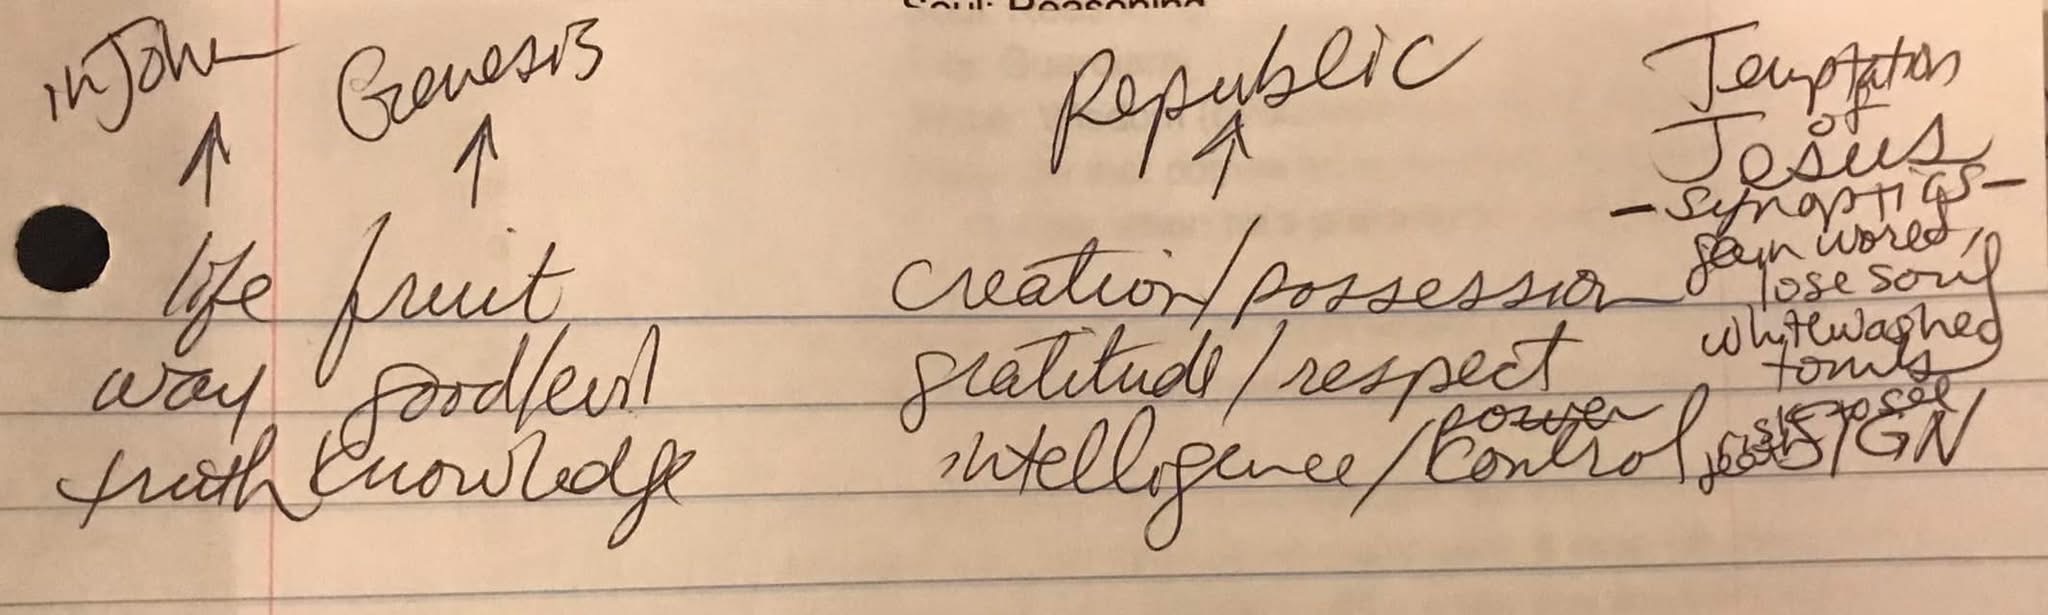 Soul: Reasoning
in John Genesis Republic Temptation
of
Jesus
- synoptics -
life fruit creation/possession gain world,
lose soul
way good/evil gratitude/respect whitewashed
tombs
truth knowledge intelligence/control power ask to see
SIGN